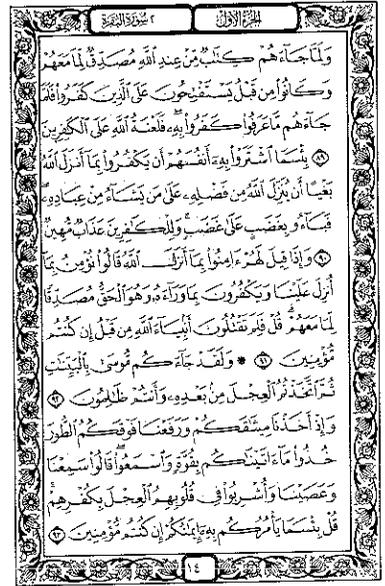 الجزء الأول ٢ سورة البقرة
ولما جاءهم كتاب من عند الله مصدق لما معهم
وكانوا من قبل يستفتحون على الذين كفروا فلما
جاءهم ما عرفوا كفروا به فلعنة الله على الكفرين
٨٩ بئسما اشتروا به أنفسهم أن يكفروا بما أنزل الله
بغيا أن ينزل الله من فضله على من يشاء من عباده
فباءو بغضب على غضب وللكفرين عذاب مهين
٩٠ وإذا قيل لهم ءامنوا بما أنزل الله قالوا نؤمن بما
أنزل علينا ويكفرون بما وراءه وهو الحق مصدقا
لما معهم قل فلم تقتلون أنبياء الله من قبل إن كنتم
مؤمنين ٩١ ولقد جاءكم موسى بالبينت
ثم اتخذتم العجل من بعده وأنتم ظلمون ٩٢
وإذ أخذنا ميثقكم ورفعنا فوقكم الطور
خذوا ما ءاتينكم بقوة واسمعوا قالوا سمعنا
وعصينا وأشربوا في قلوبهم العجل بكفرهم
قل بئسما يأمركم به إيمنكم إن كنتم مؤمنين ٩٣
١٤